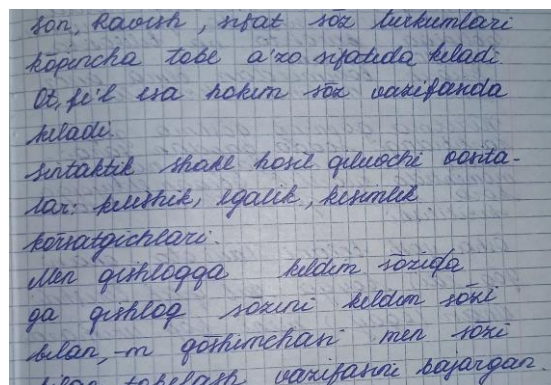 son, Ravish, sifat söz turkumlari
köpincha tobe a'zo sifatida keladi.
Ot, fe'l esa hokim söz vazifasida
keladi.
sintaktik shakl hosil qiluvchi vosita-
lar: kelishik, egalik, kesimlik
körsatgichlari.
Men qishloqqa keldim sözida
ga qishloq sözini keldim sözi
bilan, -m qöshimchasi men sözi
bilan tobelash vazifasini bajargan.